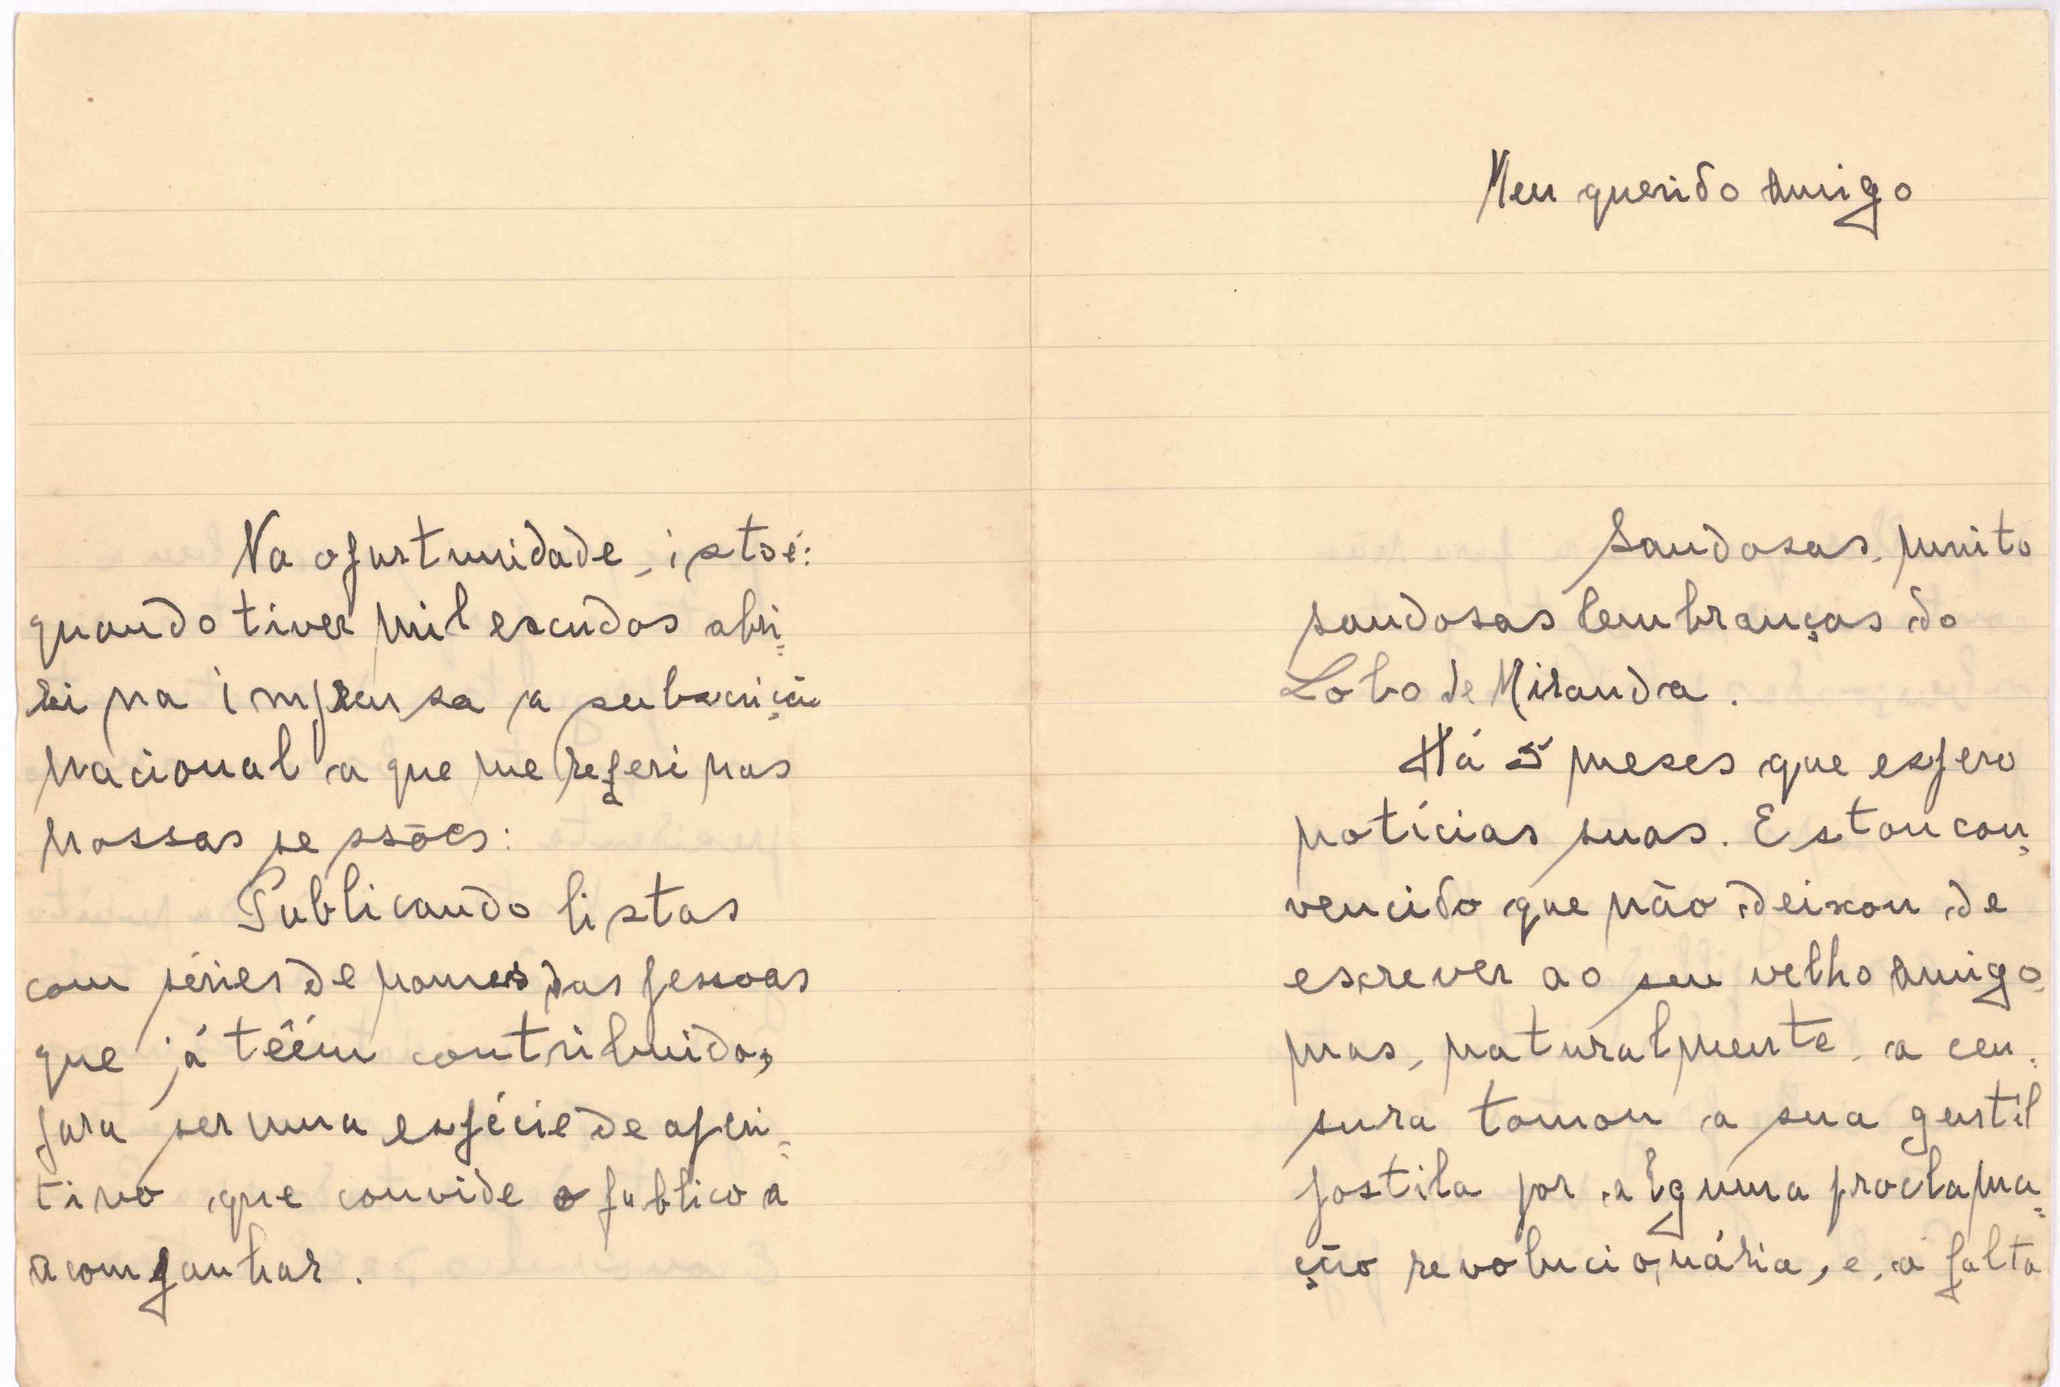 Meu querido amigo
Saudosas, muito
saudosas lembranças do
Lobo de Miranda.
Há 5 meses que espero
notícias suas. Estou con=
vencido que não deixou de
escrever ao seu velho amigo
mas, naturalmente, a cen=
sura tomou a sua gentil
postila por alguma proclama=
ção revolucionária, e, á falta
Na oportunidade, isto é:
quando tiver mil escudos abri=
rei na imprensa a subscrição
Nacional a que me referi nas
nossas sessões:
Publicando listas
com séries de nomes das pessoas
que já têem contribuido,
para ser uma espécie de aperi=
tivo que convide o publico a
acompanhar.